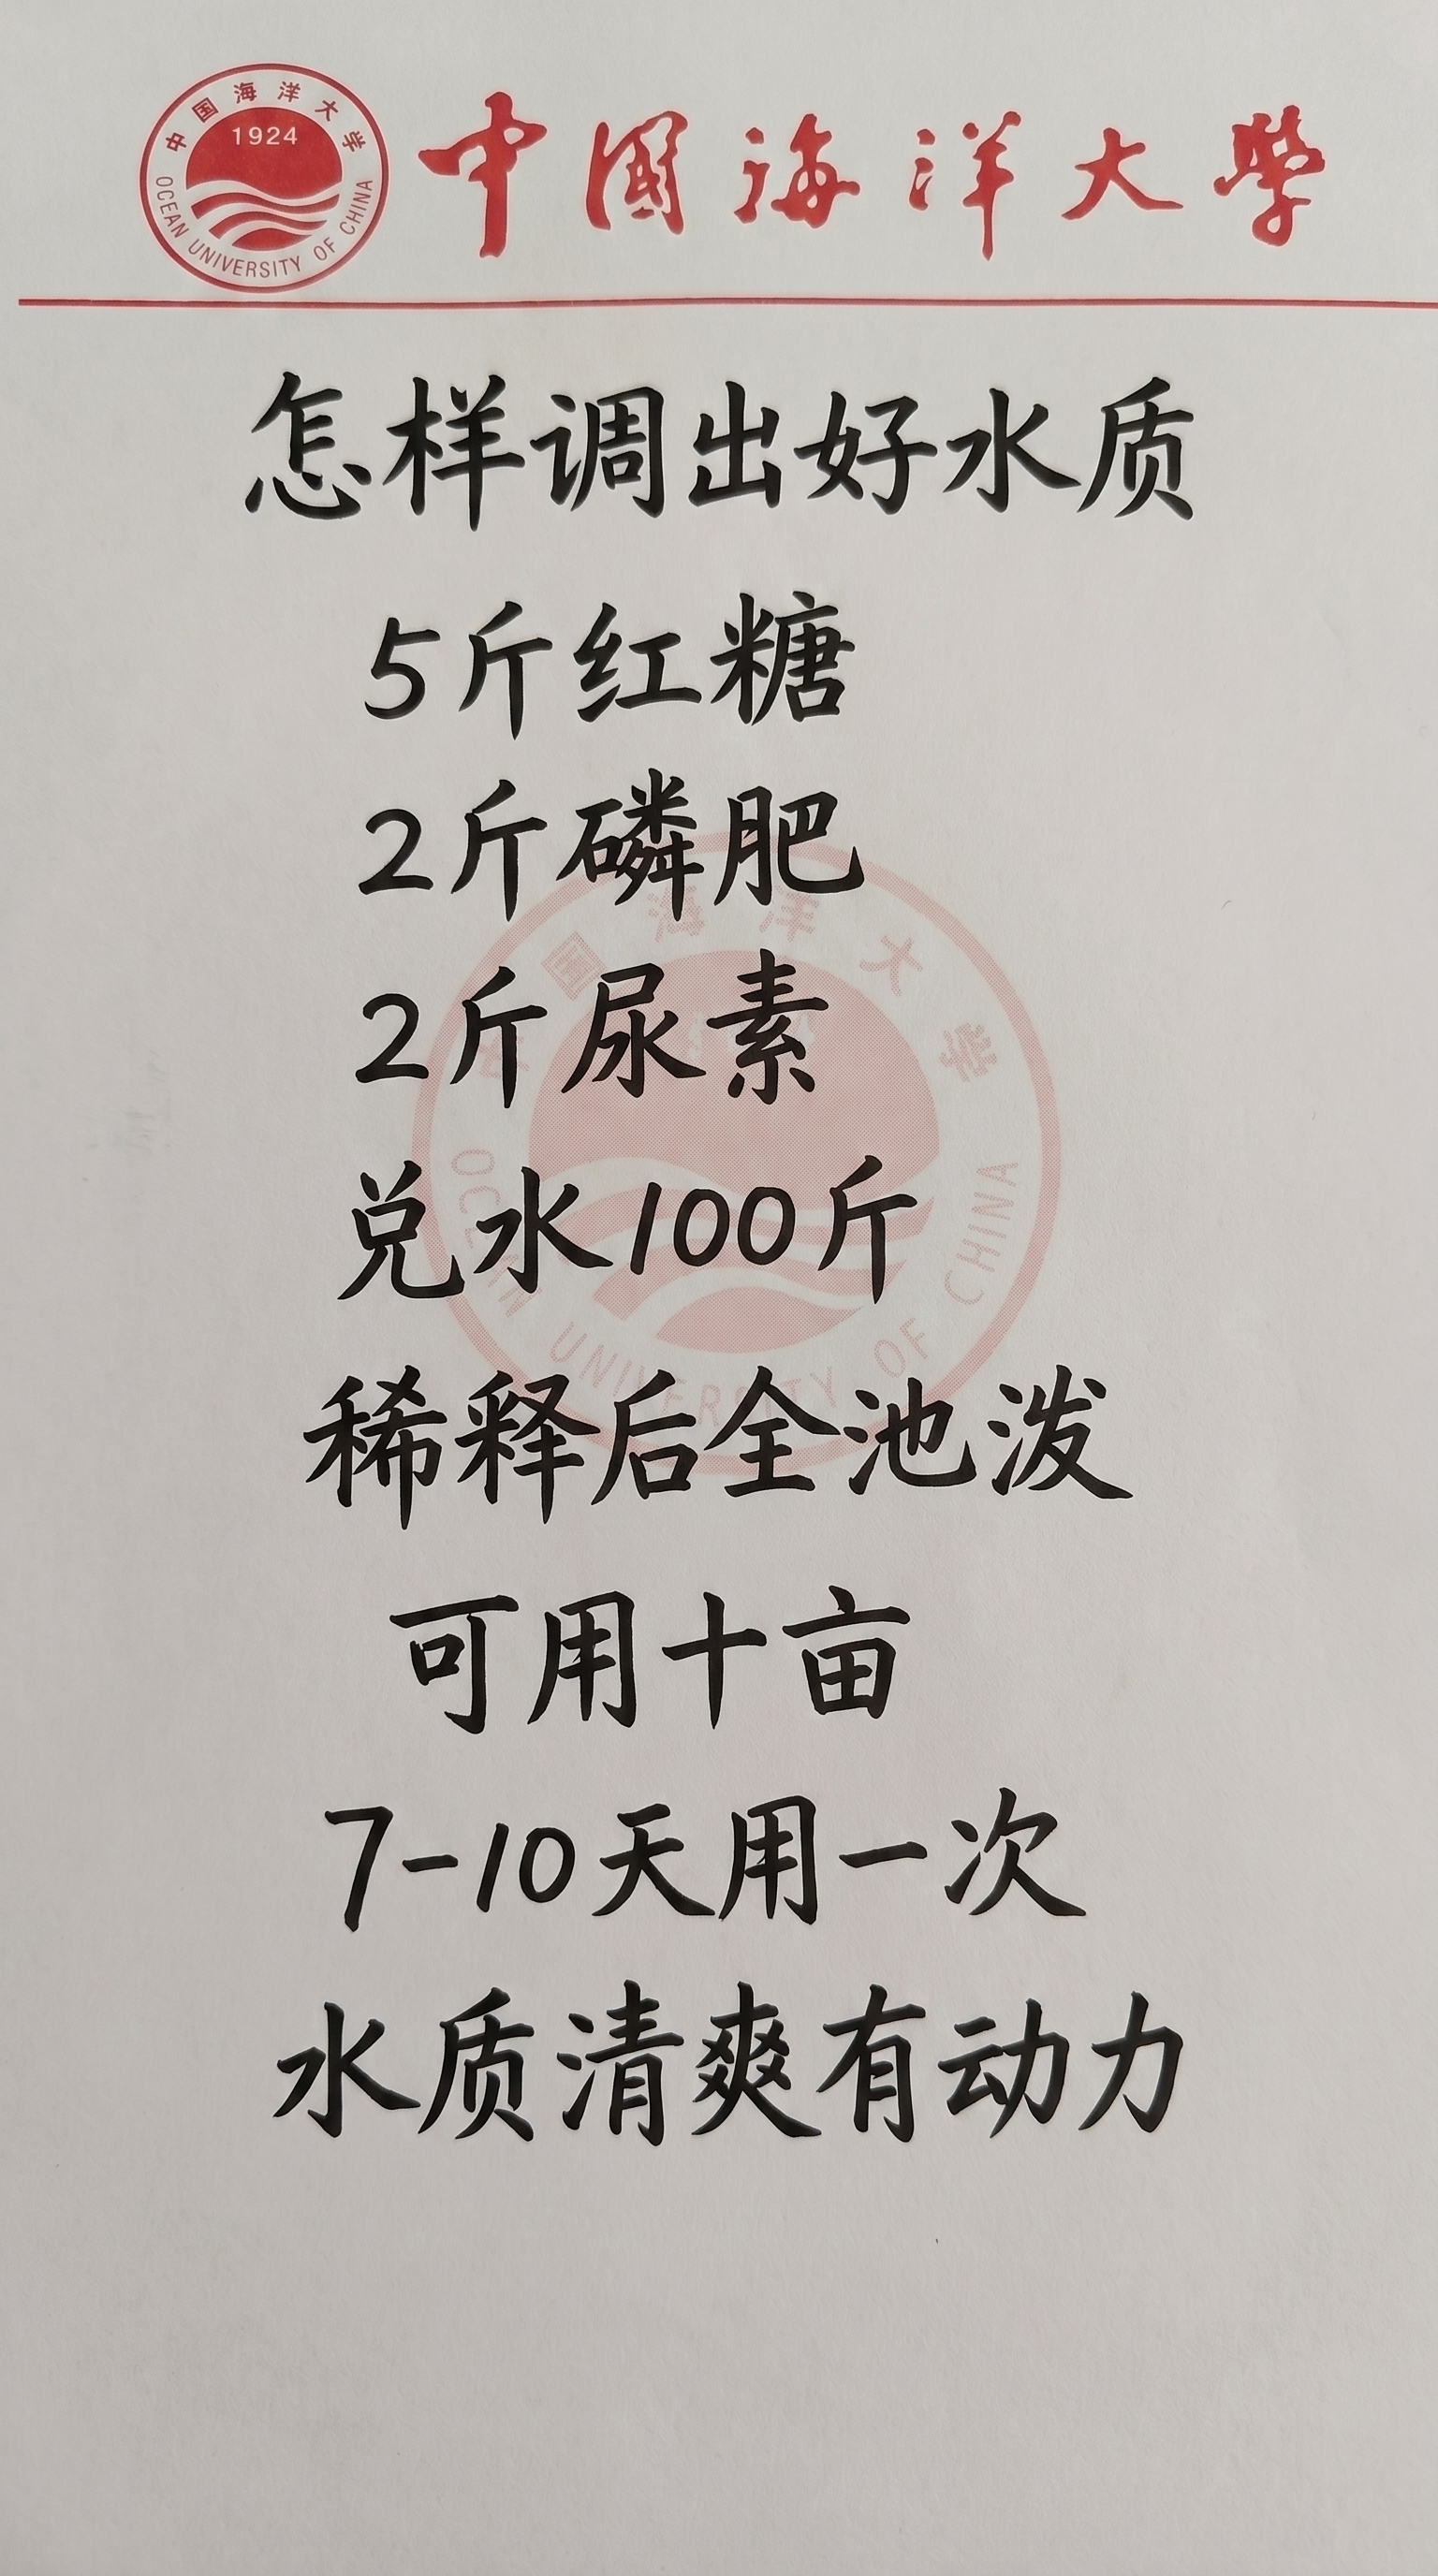 中国海洋大学
1924
OCEAN UNIVERSITY OF CHINA
中國海洋大學
怎样调出好水质
5斤红糖
2斤磷肥
2斤尿素
兑水100斤
稀释后全池泼
可用十亩
7-10天用一次
水质清爽有动力
国海洋大学
OCEAN UNIVERSITY OF CHINA